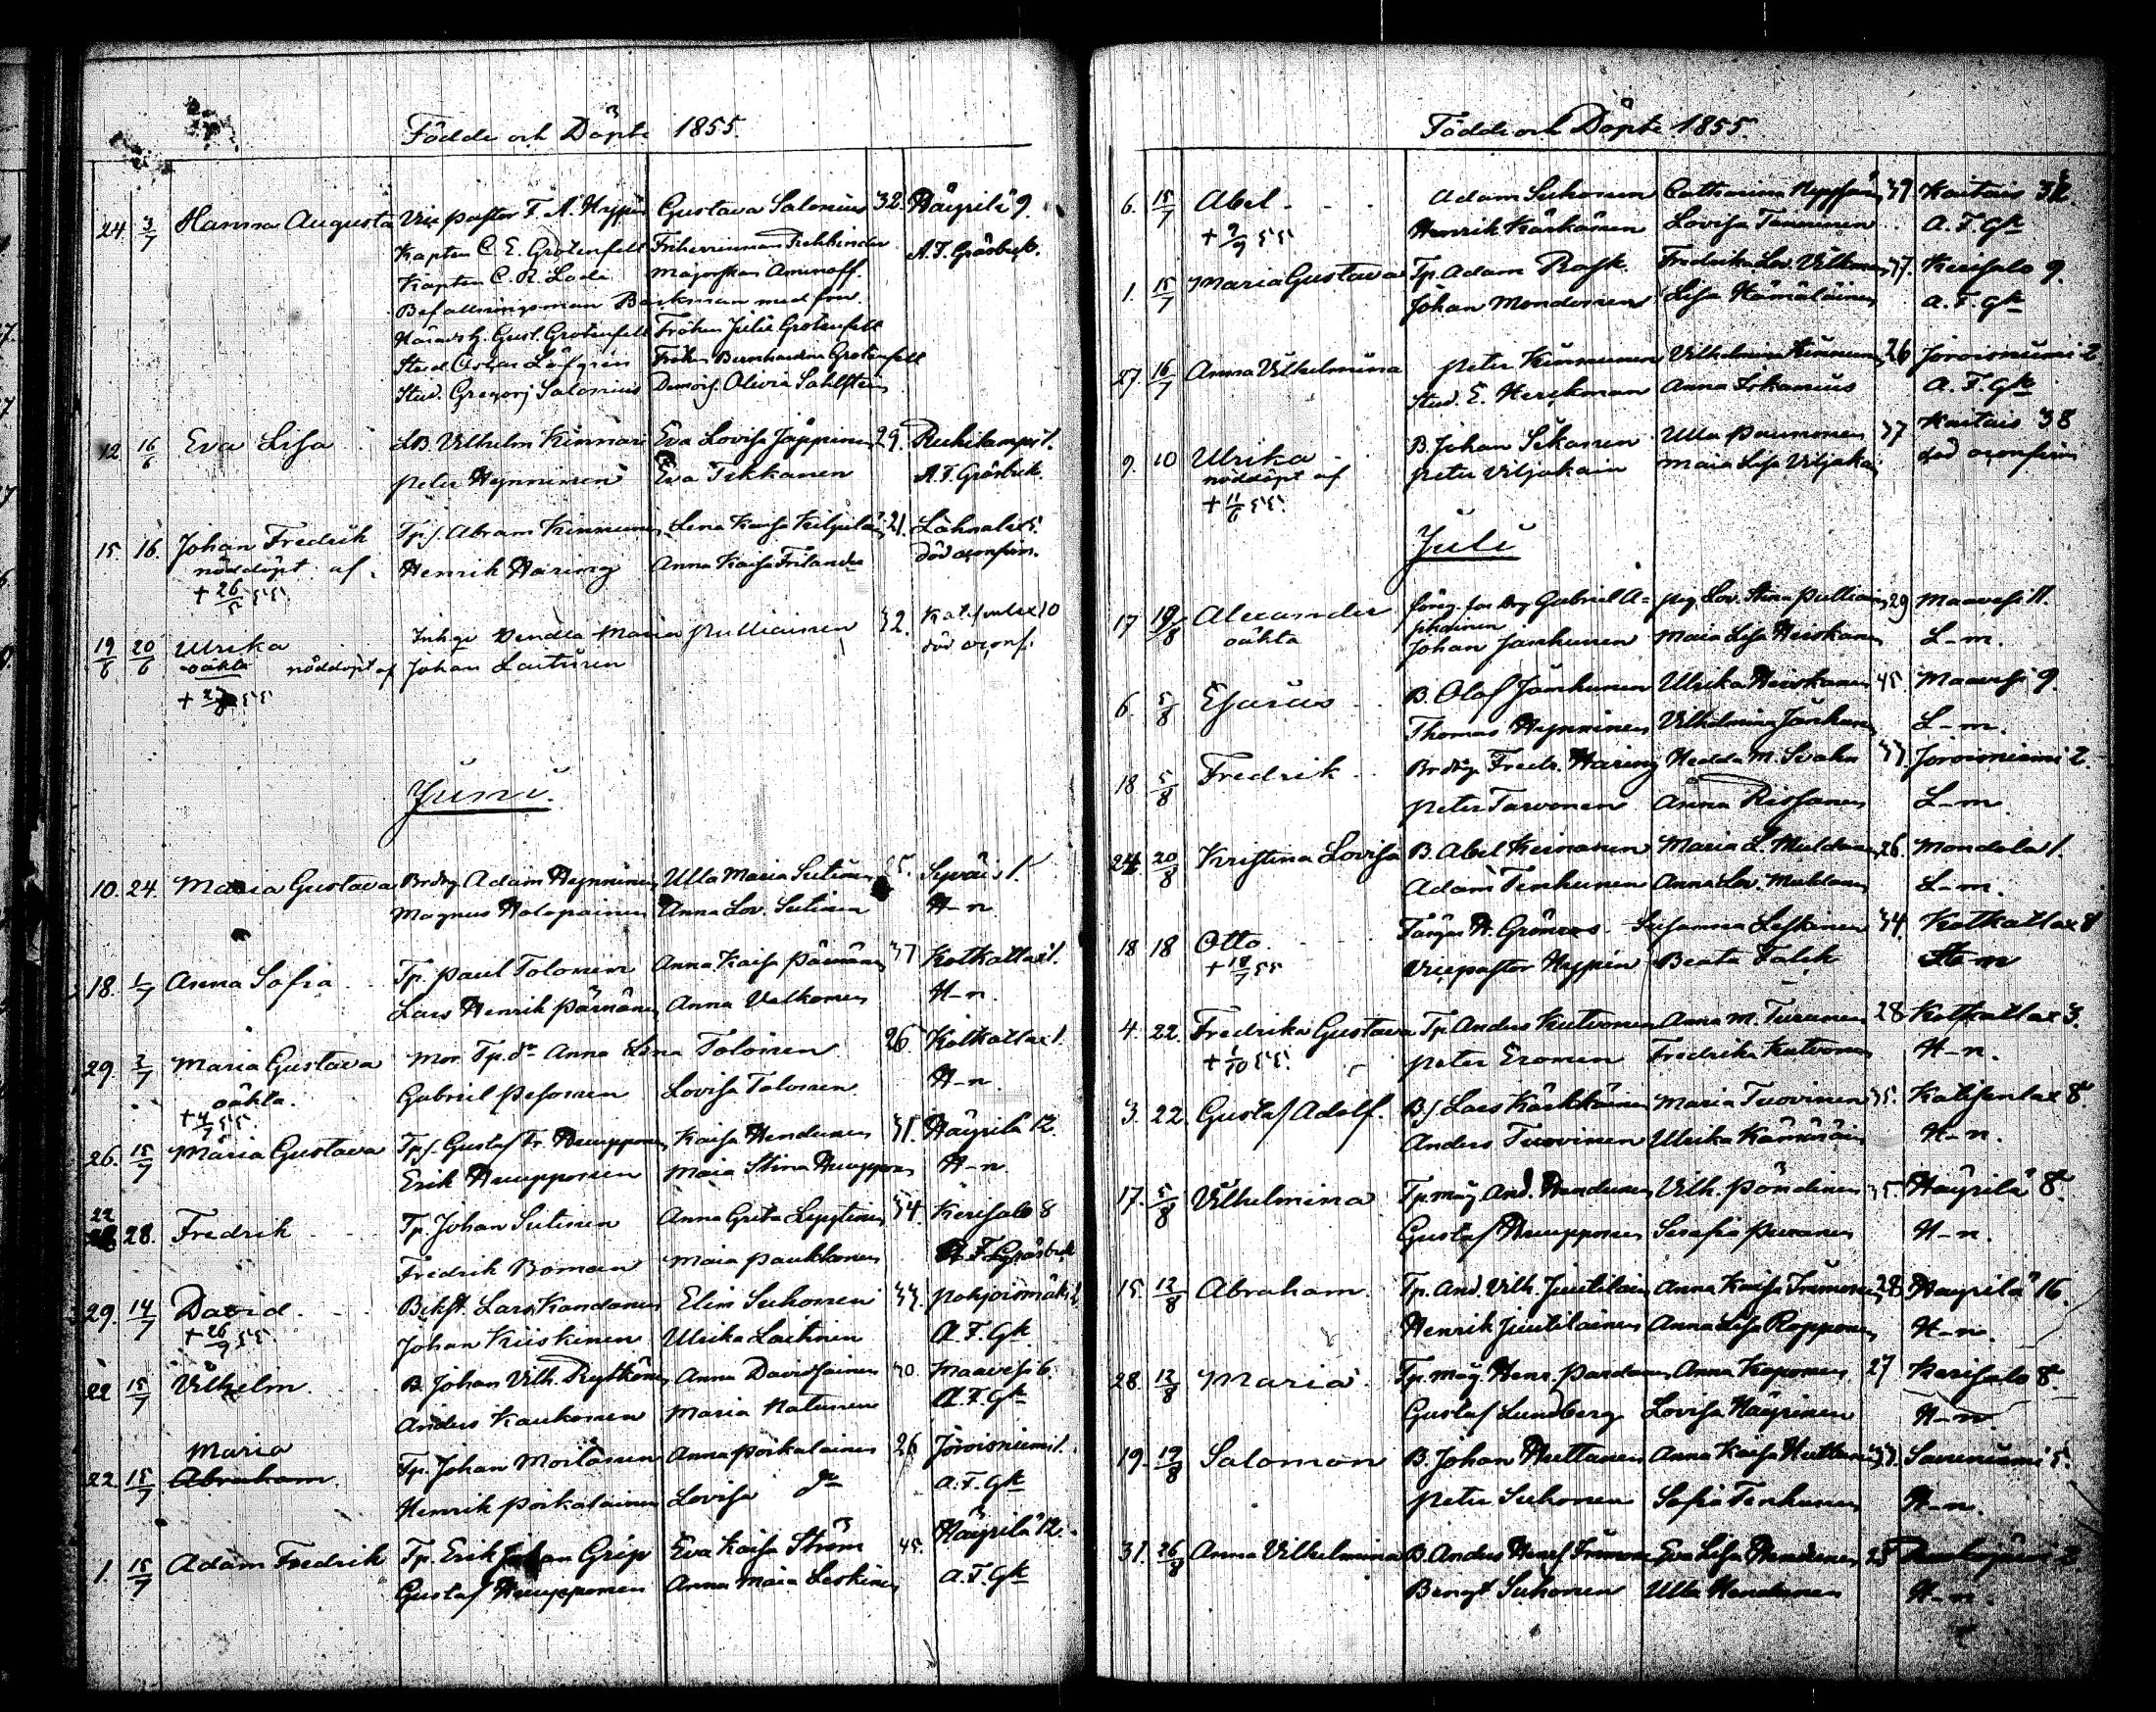 Födde och Döpte 1855.
24. 3/7 Hanna Augusta Vice pastor F. A. Hyppén Gustava Salonius 32. Häyrilä 9.
Kapten C. E. Grotenfelt Friherrinnan Rehbinder A. F. Gråsbeck.
Kapten C. R. Lode Majorskan Aminoff.
Befallningsman Backman med fru.
Häradsh. Gust. Grotenfelt Fröken Julie Grotenfelt
Stud. Oskar Löfgrén Fröken Bernhardina Grotenfelt
Stud. Gregorj Salonius Demois. Olivia Sahlstén
12. 16/6 Eva Lisa LB. Vilhelm Kinnari Eva Lovisa Jäppinen 29. 1.
Peter Hynninen Eva Tikkanen A. F. Gråsbeck.
15. 16. Johan Fredrik Tp. s. Abram Kinnunen Lena Kaisa 21. 5.
nöddöpt af. Henrik Häring Anna Kaisa Frilander död oconfirm.
+ 26/5 55.
19/6 20/6 Ulrika Inhys Vendla Maria Pulliainen 32. 10
oäkta nöddöpt af Johan Laitinen död oconf.
+ 55
Juni.
10. 24. Maria Gustava Brdrg Adam Hynninen Ulla Maria Sutinen 25. Syväis 1.
Magnus Holopainen Anna Lov. Sutinen H-n
18. 1/7 Anna Sofia Tp. Paul Tolonen Anna Kaisa Pärnänen 37 Kotkatlax 1.
Lars Henrik Pärnänen Anna Valkonen H-n.
29. 2/7 Maria Gustava Mor. Tp. dr Anna Lena Tolonen 26. Kotkatlax 1.
oäkta. Gabriel Pesonen Lovisa Tolonen H-n.
+ 4/7 55.
26. 15/7 Maria Gustava Tp. s. Gustaf Fr. Huupponen Kaisa Hendunen 31. Häyrilä 12.
Erik Huupponen Maia Stina Huupponen H-n.
22 28. Fredrik Tp. Johan Sutinen Anna Greta 34. Kerisalo 8
Fredrik Boman Maia Paukkonen A. F. Gråsbeck
29. 14/7 David Lars Kandanen Elin Suhonen 33. Pohjoismäki 2.
+ 26/9 55. Johan Kiiskinen Ulrika Laitinen A. F. Gk
22 15/7 Vilhelm. B. Johan Vilh. Rytkönen Anna Davidsainen 30 Maavesi 6.
Anders Kaukonen Maria Natunen A. F. Gk
Maria
22. 15/7 Abraham. Tp. Johan Anna Poikalainen 26 Joroisniemi 1.
Henrik Poikalainen Lovisa do A. F. Gk
1. 15/7 Adam Fredrik Tp. Erik Johan Grip Eva Kaisa Ström 45. Häyrilä 12.
Gustaf Huupponen Anna Maia Leskinen A. F. Gk
Födde och Döpte 1855.
6. 15/7 Abel Adam Suhonen Catharina 39 Kaitais
+ 9/9 55 Henrik Kärkänen Lovisa A. F. Gk
1. 15/7 Maria Gustava Tp. Adam Rask. Fredrika Lov. Vilkman 37. Kerisalo 9.
Johan Mondonen Lisa Hämäläinen A. F. Gk
27. 16/7 Anna Vilhelmina Peter Kinnunen Vilhelmina Kinnunen 26 Joroisniemi 2
Stud. E. Herckman Anna Forkamius A. F. Gk
9. 10 Ulrika B. Johan Sikanen Ulla Paunonen 37 Kaitais 38
nöddöpt af Peter Viljakain Maia Lisa Viljakain död oconfirm
+ 11/6 55.
Juli
17 19/8 Alexander Dreng Gabriel A= Pig. Lov. Stina Pulliain 29 Maavesi 11.
oäkta Johan Janhunen Maia Lisa Heiskanen L-m.
6. 5/8 Esaias B. Olof Janhunen Ulrika Heiskanen 45 Maavesi 9.
Thomas Hynninen Vilhelmina Janhunen L-m.
18 5/8 Fredrik Brdrg. Fredr. Häring Hedda M. Svahn 33. Joroisniemi 2.
Peter Tarvonen Anna Rissanen L-m
24 20/8 Kristina Lovisa B. Abel Keinanen Maria L. Muldonen 26. Mondola 1.
Adam Tenhunen Anna Lov. Muldonen L-m.
18 18 Otto. Färgar H. Grönroos Susanna Leskinen 34. Kotkatlax
+ 18/7 55 Vicepastor Hyppén Beata Falck H-n
4. 22. Fredrika Gustava Tp. Anders Kutvonen Anna M. Turunen 28 Kotkatlax 3.
+ 1/10 55. Peter Eronen Fredrika Kutvonen H-n.
3. 22. Gustaf Adolf. Bs. Lars Kärkkäinen Maria Tuovinen 35. 8.
Anders Tuovinen Ulrika Kämäräin H-n.
17. 5/8 Vilhelmina Tp. måg And. Hendunen Vilh. Pöndinen 35. Häyrilä 8.
Gustaf Huupponen Serafia Puranen H-n.
15 12/8 Abraham Tp. And. Vilh. Juutilain Anna Kaisa Immonen 28 Häyrilä 16.
Henrik Juutilainen Anna Lisa Ropponen H-n.
28. 12/8 Maria. Tp. måg. Henr. Pardanen Anna Koponen 27 Kerisalo 8.
Gustaf Lundberg Lovisa Häyrinen H-n
19. 19/8 Salomon B. Johan Huttunen Anna Kaisa Huttunen 33. Savuniemi 5.
Peter Suhonen Sofia Tenhunen H-n.
31. 26/8 Anna Vilhelmina B. Anders Immonen Eva Lisa Hendunen 25 2
Bengt Suhonen Ulla Hendunen H-n.